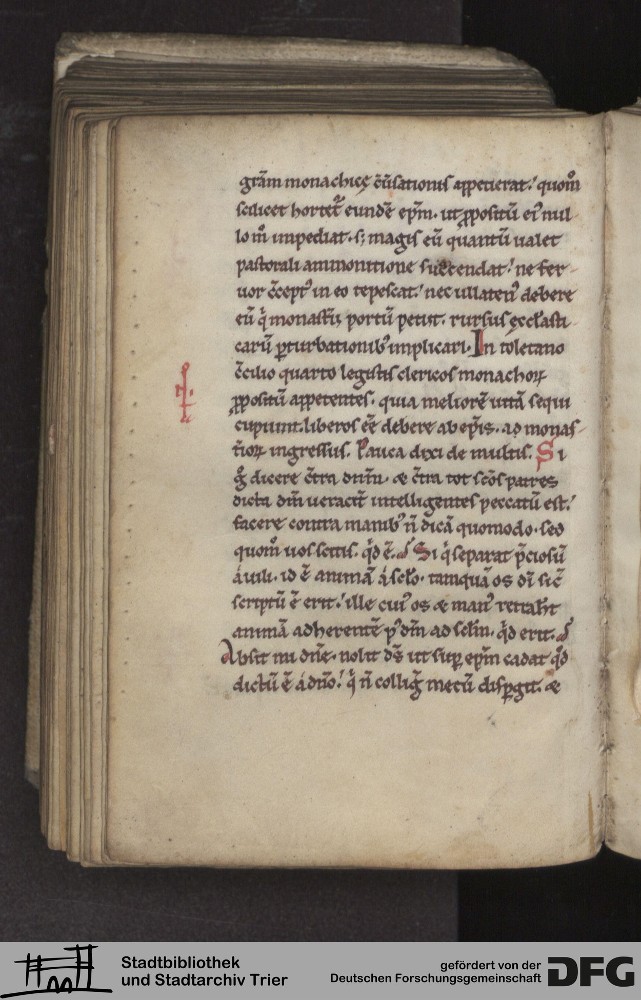 grãm monachicę c̄uersationis appetierat. quom̊
scilicet hortet᷑ eundē ep̄m. ut p̱positū ei᷒ nul-
lo m̊ impediat. s; magis eū quantū ualet
pastorali ammonitione succendat. ne fer-
uor c̄cept᷒ in eo tepescat. nec ullaten᷒ debere
eū q̇ monastīī portū petiit. rursus ęcclasti-
caru ꝑturbationib᷒ implicari. In toletano
c̄cilio quarto legistis clericos monachoꝝ
p̱positū appetentes. quia meliorē uitā sequi
cupiunt. liberos eē debere ab ep̄is. ad monas-
t̄ioꝝ ingressus. Pauca dixi de multis. Si
g̊ dicere c̄tra dn̄m. & c̄tra tot sc̄os patres
dicta dn̄i uerac̄it intelligentes peccatū est.
facere contra manib᷒ n̄ dicā quomodo. sed
quom̊ uos scitis. q̇d ē. Si q̇ separat p̄ciosū
a uili. id ē animā a sc̄lo. tamquā os di sic̄
scriptū ē erit. ille cui᷒ os & man᷒ retrah̄t
animā adherentē p᷒ dm̄ ad sc̄lm. q̇d erit.
Absit mi dn̄e. nolit ds̄ ut sup̱ ep̄m cadat q̇d
dictū ē a dn̄o. q̇ n̄ collig̃ mecū disꝑgit. &
Stadtbibliothek
und Stadtarchiv Trier
gefördert von der
Deutschen Forschungsgemeinschaft
DFG